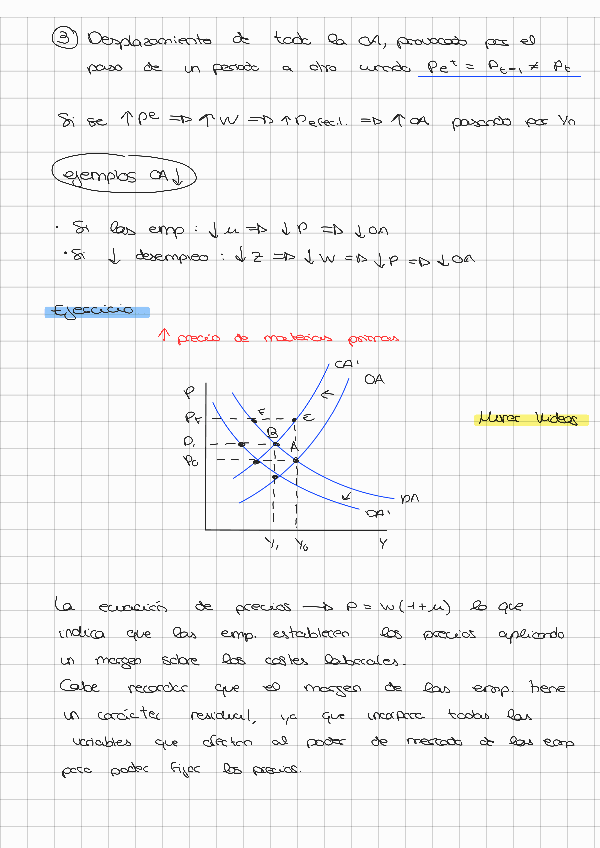 ③ Desplazamiento de toda la OA, provocado por el
paso de un periodo a otro cuando Pe^t = P_t-1 ≠ P_t
Si se ↑Pe ⇒ ↑W ⇒ ↑P efect. ⇒ ↑OA pasando por Yn
ejemplos OA↓
· Si las emp: ↓μ ⇒ ↓P ⇒ ↓OA
· Si ↓ desempleo: ↓Z ⇒ ↓W ⇒ ↓P ⇒ ↓OA
Ejercicio
↑ precio de materias primas
OA'
P OA
PF F E Mirar Videos
P1 B A
P0
DA
DA'
Y1 Y0 Y
La ecuación de precios → P = W(1+μ) lo que
indica que las emp. establecen los precios aplicando
un margen sobre los costes laborales.
Cabe recordar que el margen de las emp. tiene
un carácter residual, ya que incorpora todas las
variables que afectan al poder de mercado de las emp
para poder fijar los precios.